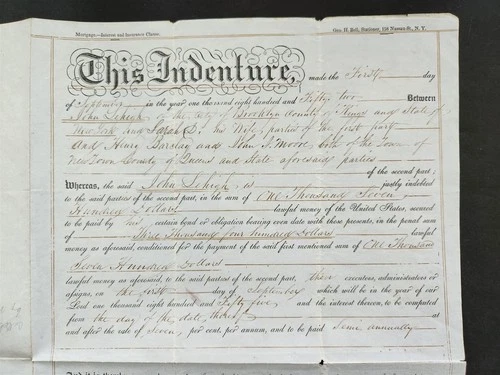 Mortgage.—Interest and Insurance Clause.
Geo. H. Bell, Stationer, 158 Nassau-St., N. Y.
This Indenture, made the First day
of September in the year one thousand eight hundred and Fifty two Between
John Lehigh of the City of Brooklyn County of Kings and State of
New York and Sarah D. his Wife, parties of the first part
And Henry Barclay and John J. Moore, both of the Town of
New Town County of Queens and State aforesaid parties
of the second part;
Whereas, the said John Lehigh is justly indebted
to the said parties of the second part, in the sum of One Thousand Seven
Hundred Dollars lawful money of the United States, secured
to be paid by certain bond or obligation bearing even date with these presents, in the penal sum
of Three Thousand four hundred Dollars
lawful money as aforesaid, conditioned for the payment of the said first mentioned sum of One Thousand
Seven Hundred Dollars
lawful money as aforesaid, to the said parties of the second part, their executors, administrators or
assigns, on the first day of September which will be in the year of our
Lord one thousand eight hundred and Fifty five, and the interest thereon, to be computed
from the day of the date thereof at
and after the rate of Seven, per cent. per annum, and to be paid Semi annually